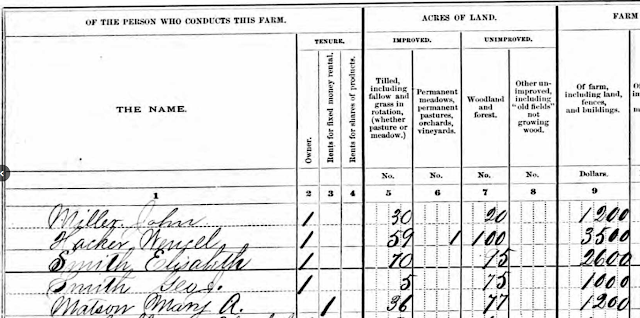 OF THE PERSON WHO CONDUCTS THIS FARM. ACRES OF LAND. FARM
TENURE. IMPROVED. UNIMPROVED.
THE NAME. Owner. Rents for fixed money rental. Rents for shares of products. Tilled, including fallow and grass in rotation, (whether pasture or meadow.) Permanent meadows, permanent pastures, orchards, vineyards. Woodland and forest. Other unimproved, including "old fields" not growing wood. Of farm, including land, fences, and buildings.
No. No. No. No. Dollars.
1 2 3 4 5 6 7 8 9
Miller, John 1 30 20 1200
Hacker, Wensel 1 59 1 100 3500
Smith, Elisabeth 1 70 75 2600
Smith 1 5 75 1000
Matson Mary A. 1 36 77 1200